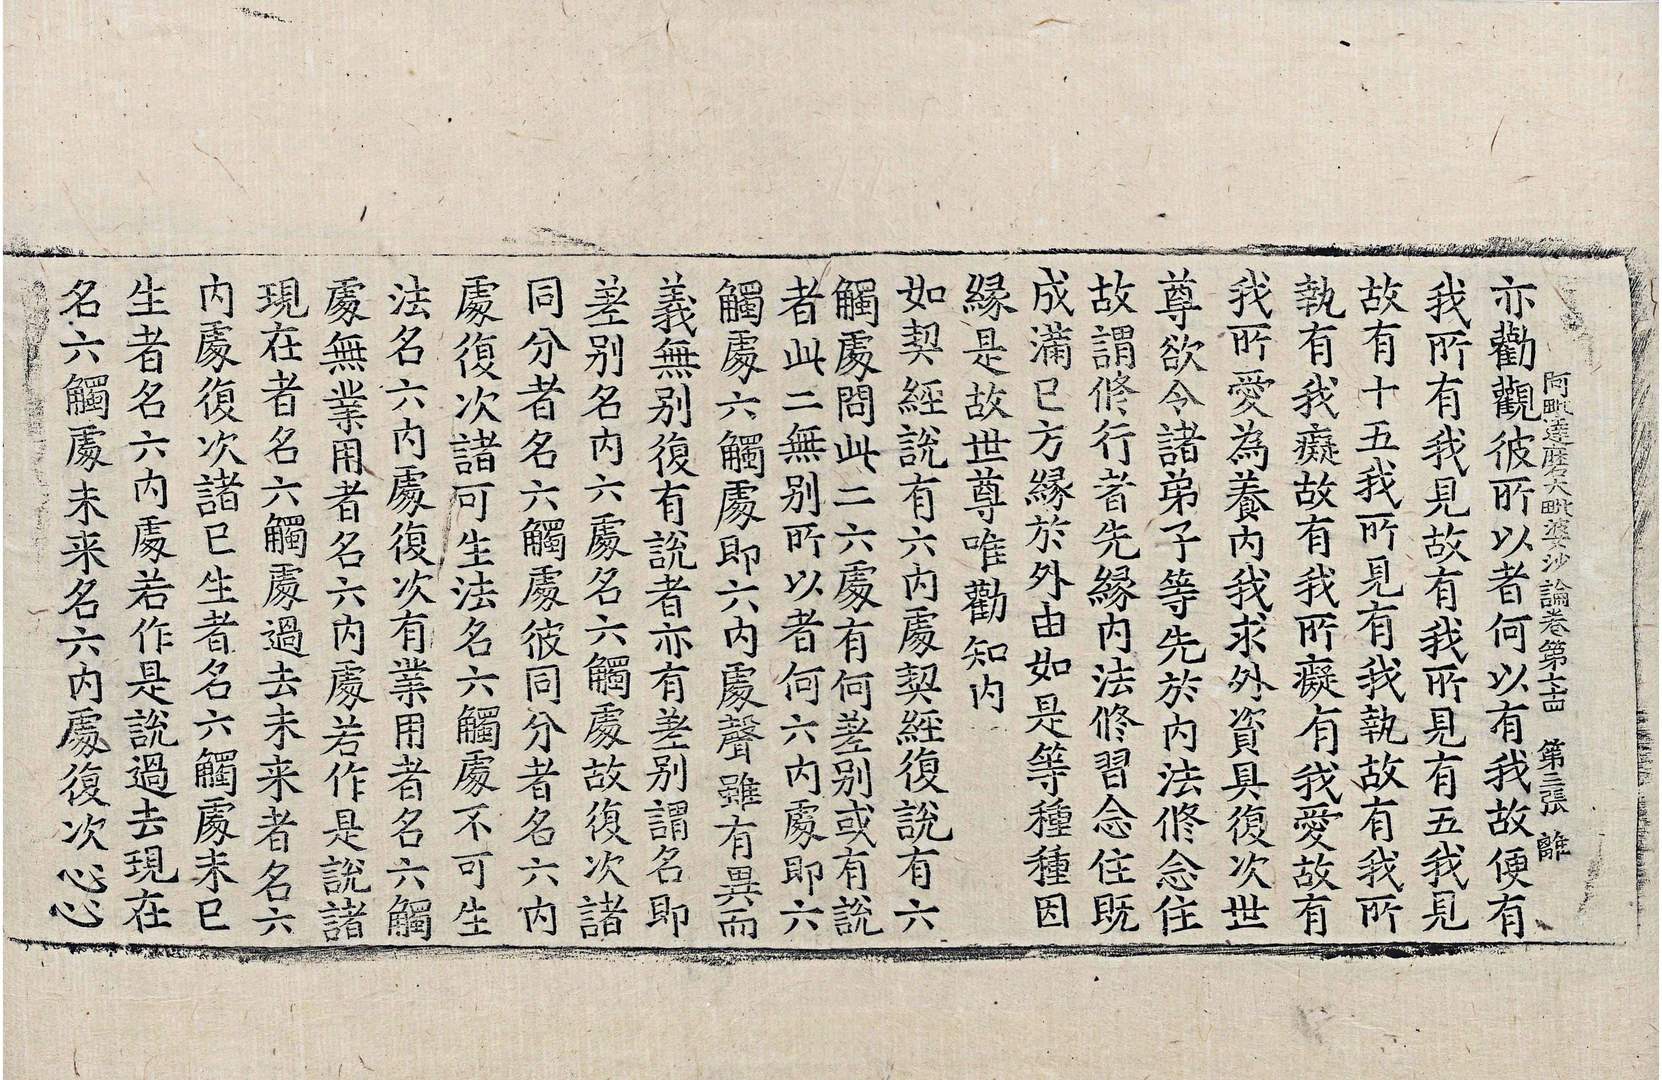 阿毗達磨大毗婆沙論卷第七十四　第三張　離
亦勸觀彼所以者何以有我故便有
我所有我見故有我所見有五我見
故有十五我所見有我執故有我所
執有我癡故有我所癡有我愛故有
我所愛為養內我求外資具復次世
尊欲令諸弟子等先於內法修念住
故謂修行者先緣內法修習念住既
成滿已方緣於外由如是等種種因
緣是故世尊唯勸知內
如契經說有六內處契經復說有六
觸處問此二六處有何差別或有說
者此二無別所以者何六內處即六
觸處六觸處即六內處聲雖有異而
義無別復有說者亦有差別謂名即
差別名內六處名六觸處故復次諸
同分者名六觸處彼同分者名六內
處復次諸可生法名六觸處不可生
法名六內處復次有業用者名六觸
處無業用者名六內處若作是說諸
現在者名六觸處過去未來者名六
內處復次諸已生者名六觸處未已
生者名六內處若作是說過去現在
名六觸處未来名六內處復次心心